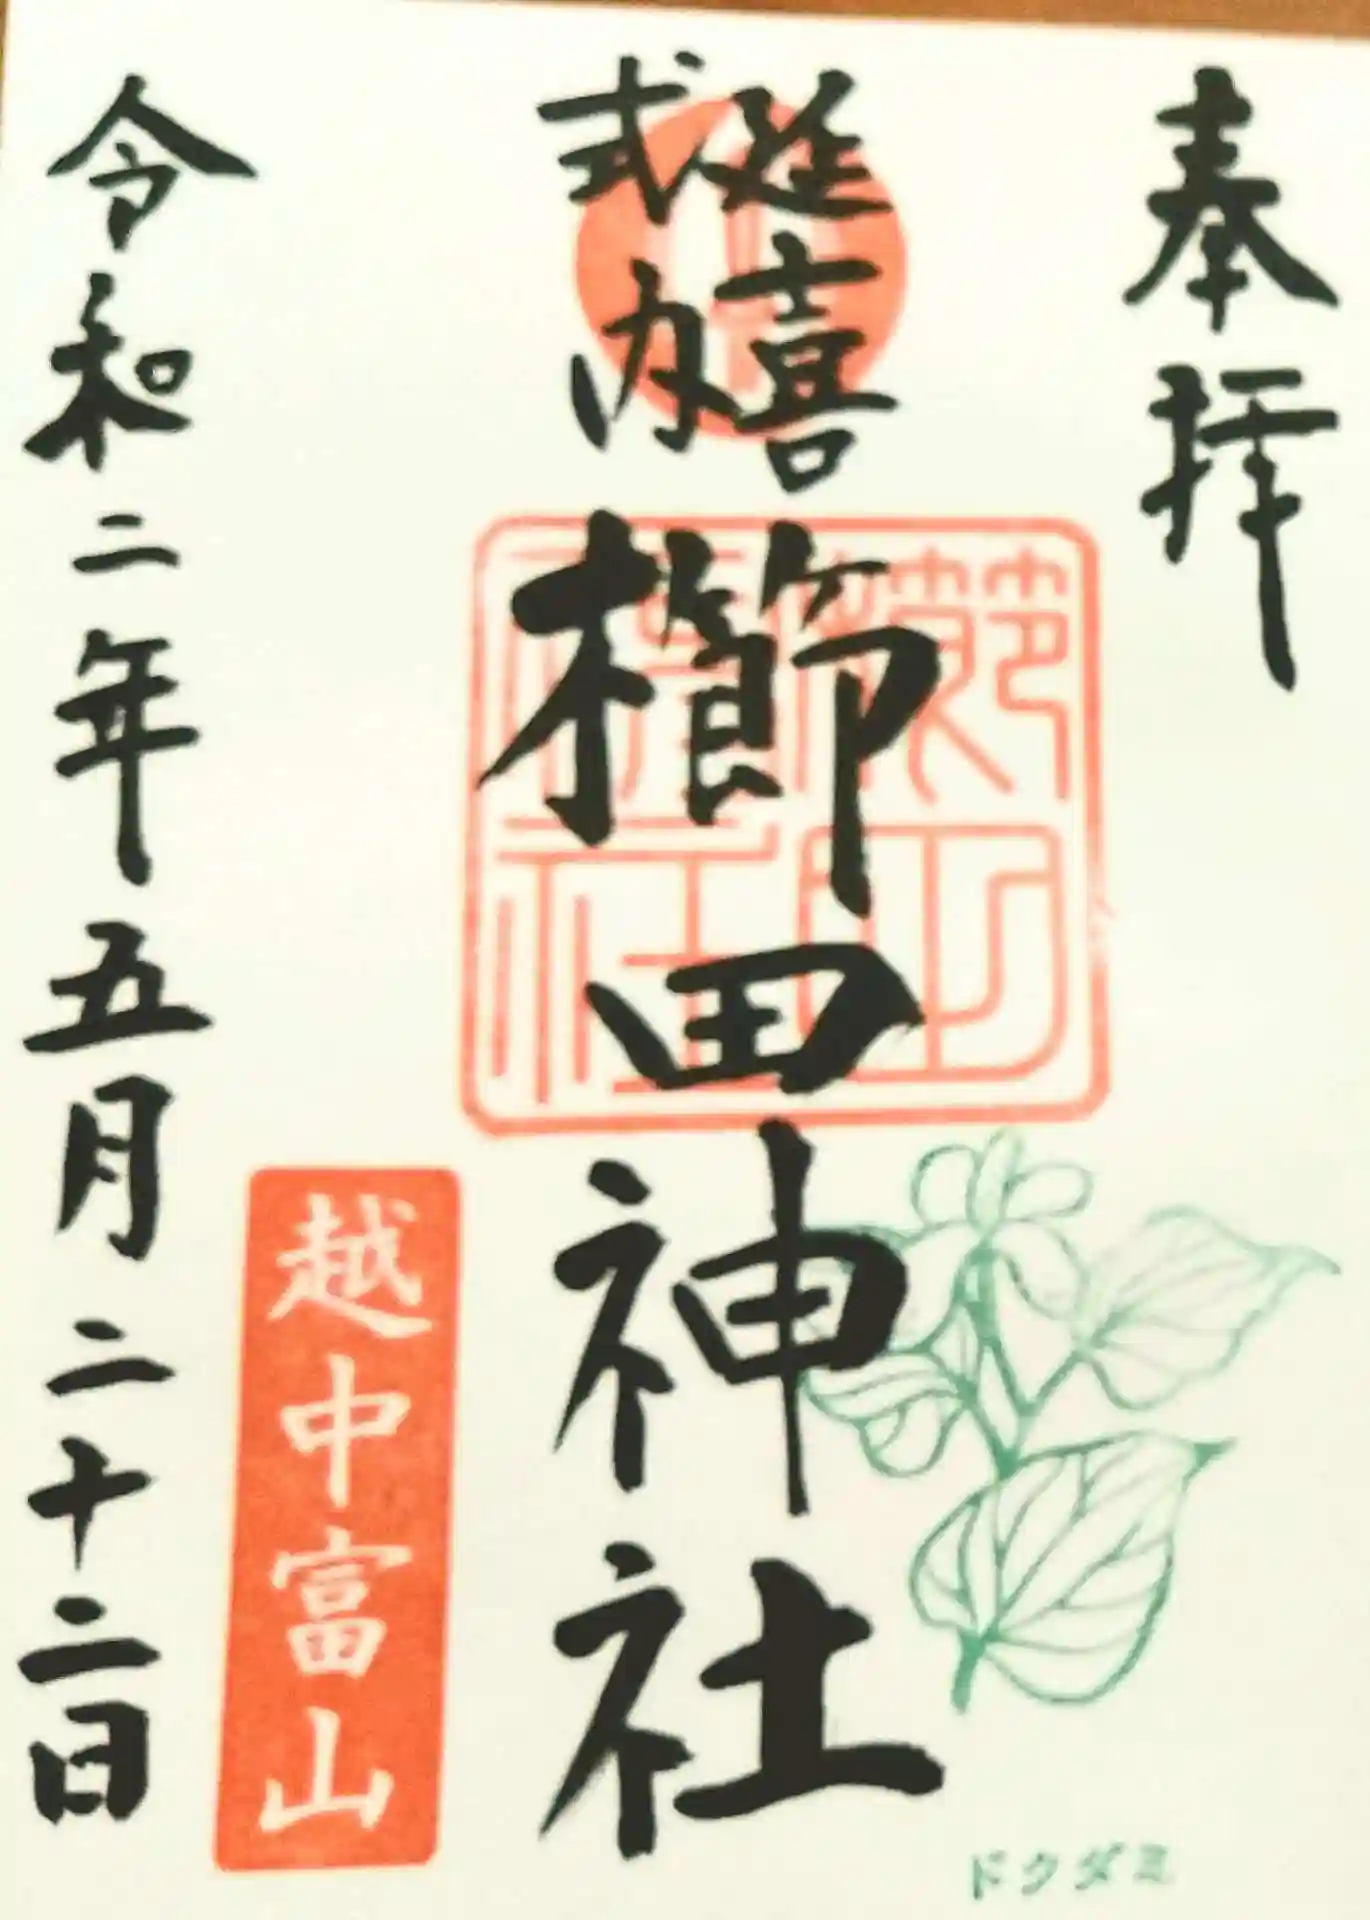 奉拝
延喜
式内
櫛田神社
櫛田
神社
越中富山
令和二年五月二十二日
ドクダミ